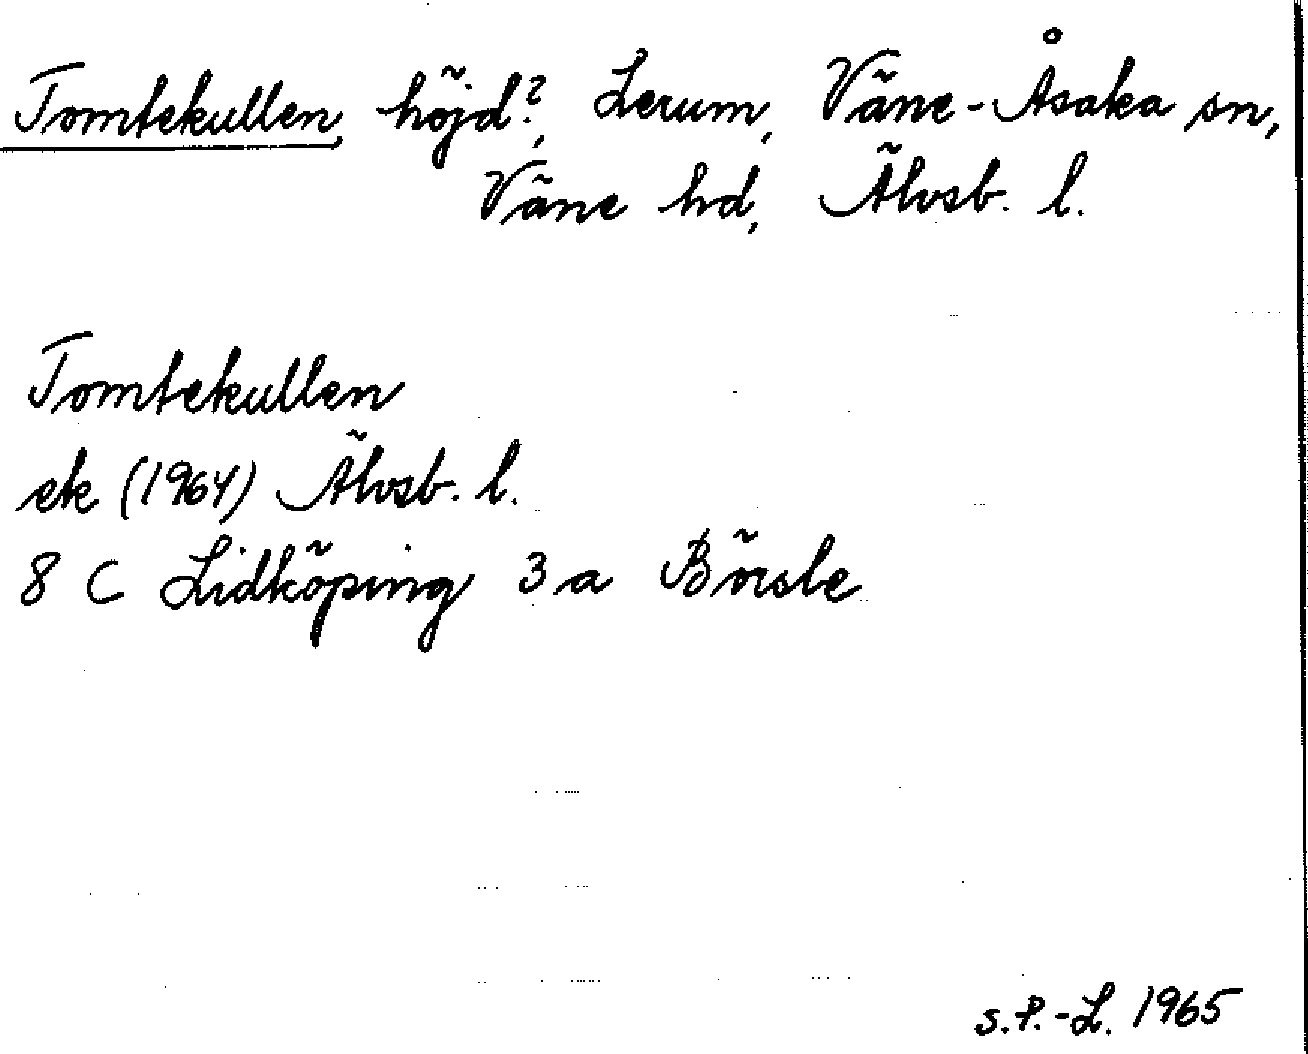 Tomtekullen, höjd?, Lerum, Väne-Åsaka sn,
Väne hd, Älvsb. l.
Tomtekullen
ek (1964) Älvsb. l.
8 C Lidköping 3 a Börsle
S.P.-L. 1965